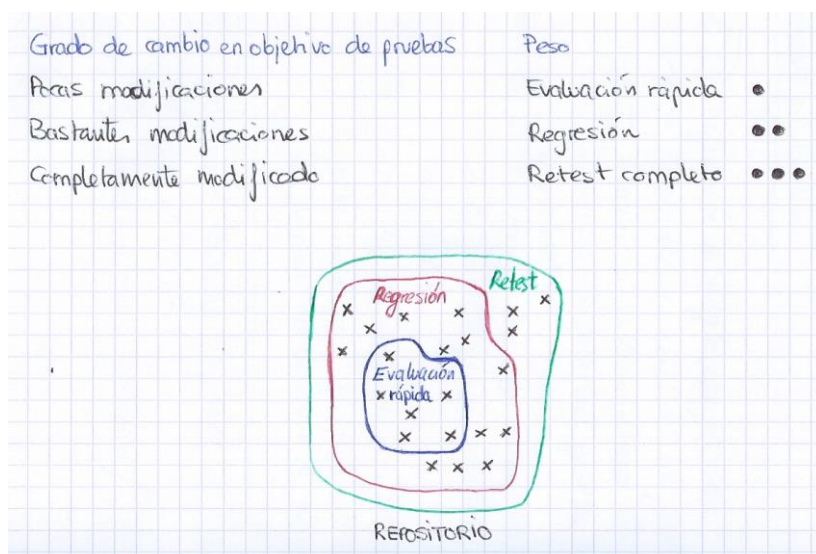 Grado de cambio en objetivo de pruebas Peso
Pocas modificaciones Evaluación rápida
Bastantes modificaciones Regresión
Completamente modificado Retest completo
Retest
Regresión
Evaluación
rápida
REPOSITORIO